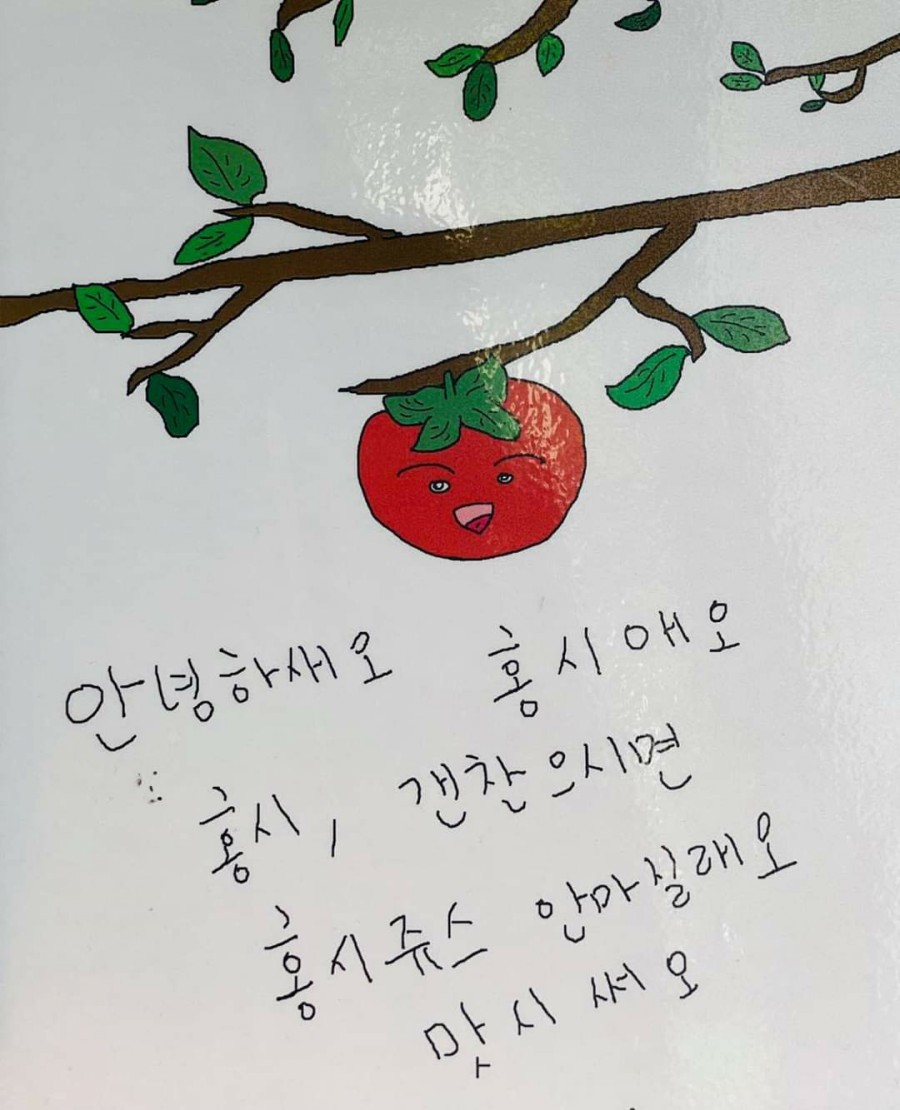 안녕하새오 홍시애오
홍시, 갠찬으시면
홍시쥬스 안마실래오
맛시써오